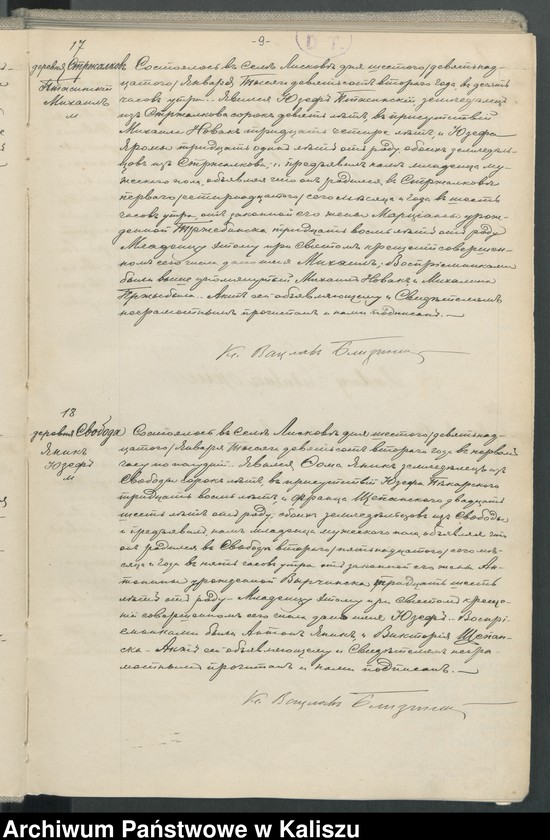 -9-
17
деревня Стржалковъ
Птасинскій
Михаилъ
м
Состоялось въ селѣ Лисковъ дня шестого/девятнад-
цатого/ Января тысяча девятьсотъ второго года, въ десять
часовъ утра. Явился Юзефъ Птасинскій, земледѣлецъ
изъ Стржалкова сорокъ девять лѣтъ, въ присутствіи
Михаила Новакъ тридцать четыре лѣтъ, и Юзефа
тридцать одна лѣтъ отъ роду, обоихъ земледѣль-
цовъ изъ Стржалкова, и предъявилъ намъ младенца му-
жескаго пола, объявляя что онъ родился въ Стржалковѣ
первого/четырнадцатого/ сего мѣсяца и года въ шесть
часовъ утра, отъ законной его жены Марціанны урож-
денной тридцать восемь лѣтъ отъ роду
Младенцу этому при Святомъ крещеніи совершен-
номъ сего числа дано имя Михаилъ, Воспріемниками
были выше упомянутый Михаилъ Новакъ и Михалина
Пржибыла. Актъ сей объявляющему и Свидѣтелямъ
неграмотнымъ прочитанъ и нами подписанъ.
Кс. Вацлавъ Близинскій
18
деревня Свобода
Яникъ
Юзефъ
м
Состоялось въ селѣ Лисковъ дня шестого/девятнад-
цатого/ Января тысяча девятьсотъ второго года въ первомъ
часу по полудни. Явился Ѳома Яникъ земледѣлецъ изъ
Свободы сорокъ лѣтъ, въ присутствіи Юзефа Пѣкарского
тридцать восемь лѣтъ, и Франца Щепанского двадцать
шесть лѣтъ отъ роду, обоихъ земледѣльцовъ изъ Свободы
и предъявилъ намъ младенца мужескаго пола, объявляя что
онъ родился въ Свободѣ второго/пятнадцатого/ сего мѣ-
сяца и года въ пять часовъ утра отъ законной его жены Ан-
тонины урожденной Варчинска, тридцать шесть
лѣтъ отъ роду. Младенцу этому при Святомъ креще-
ніи совершенномъ сего числа дано имя Юзефъ. Воспрі-
емниками были Антонъ Яникъ, и Викторія Щепан-
ска. Актъ сей объявляющему и Свидѣтелямъ негра-
мотнымъ прочитанъ и нами подписанъ.
Кс. Вацлавъ Близинскій
Archiwum Państwowe w Kaliszu